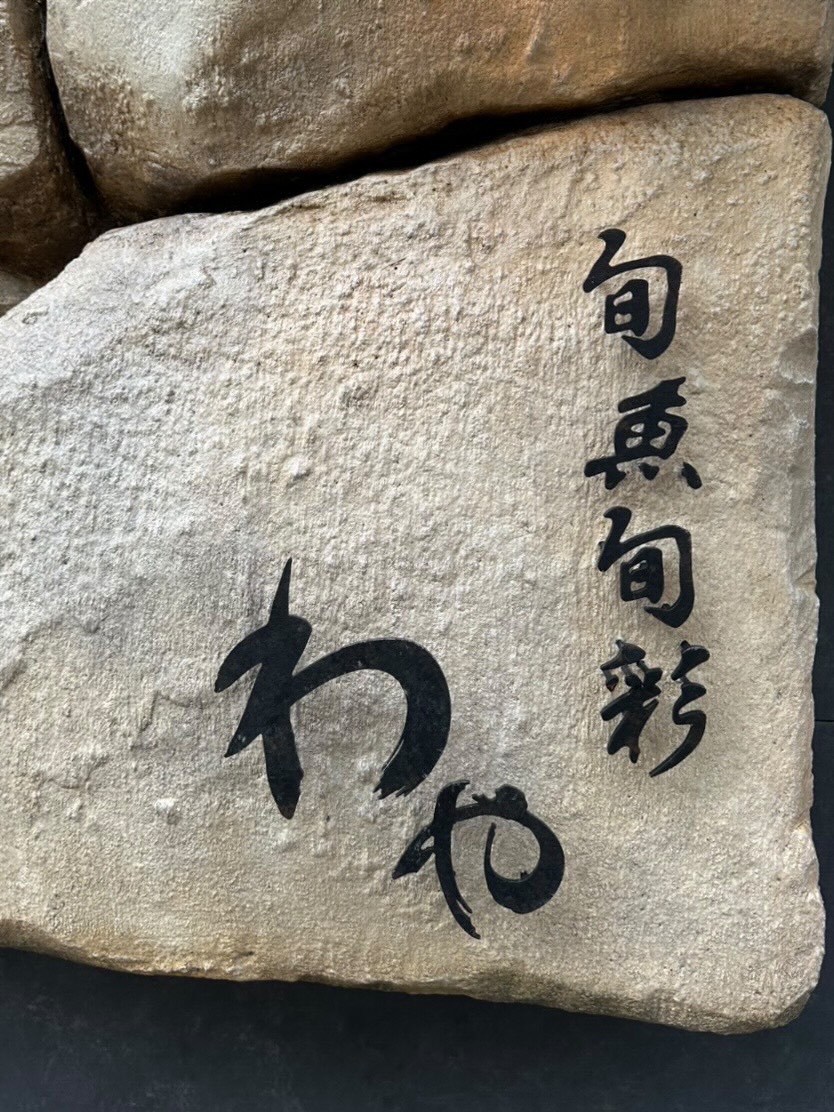 旬魚旬彩
わや